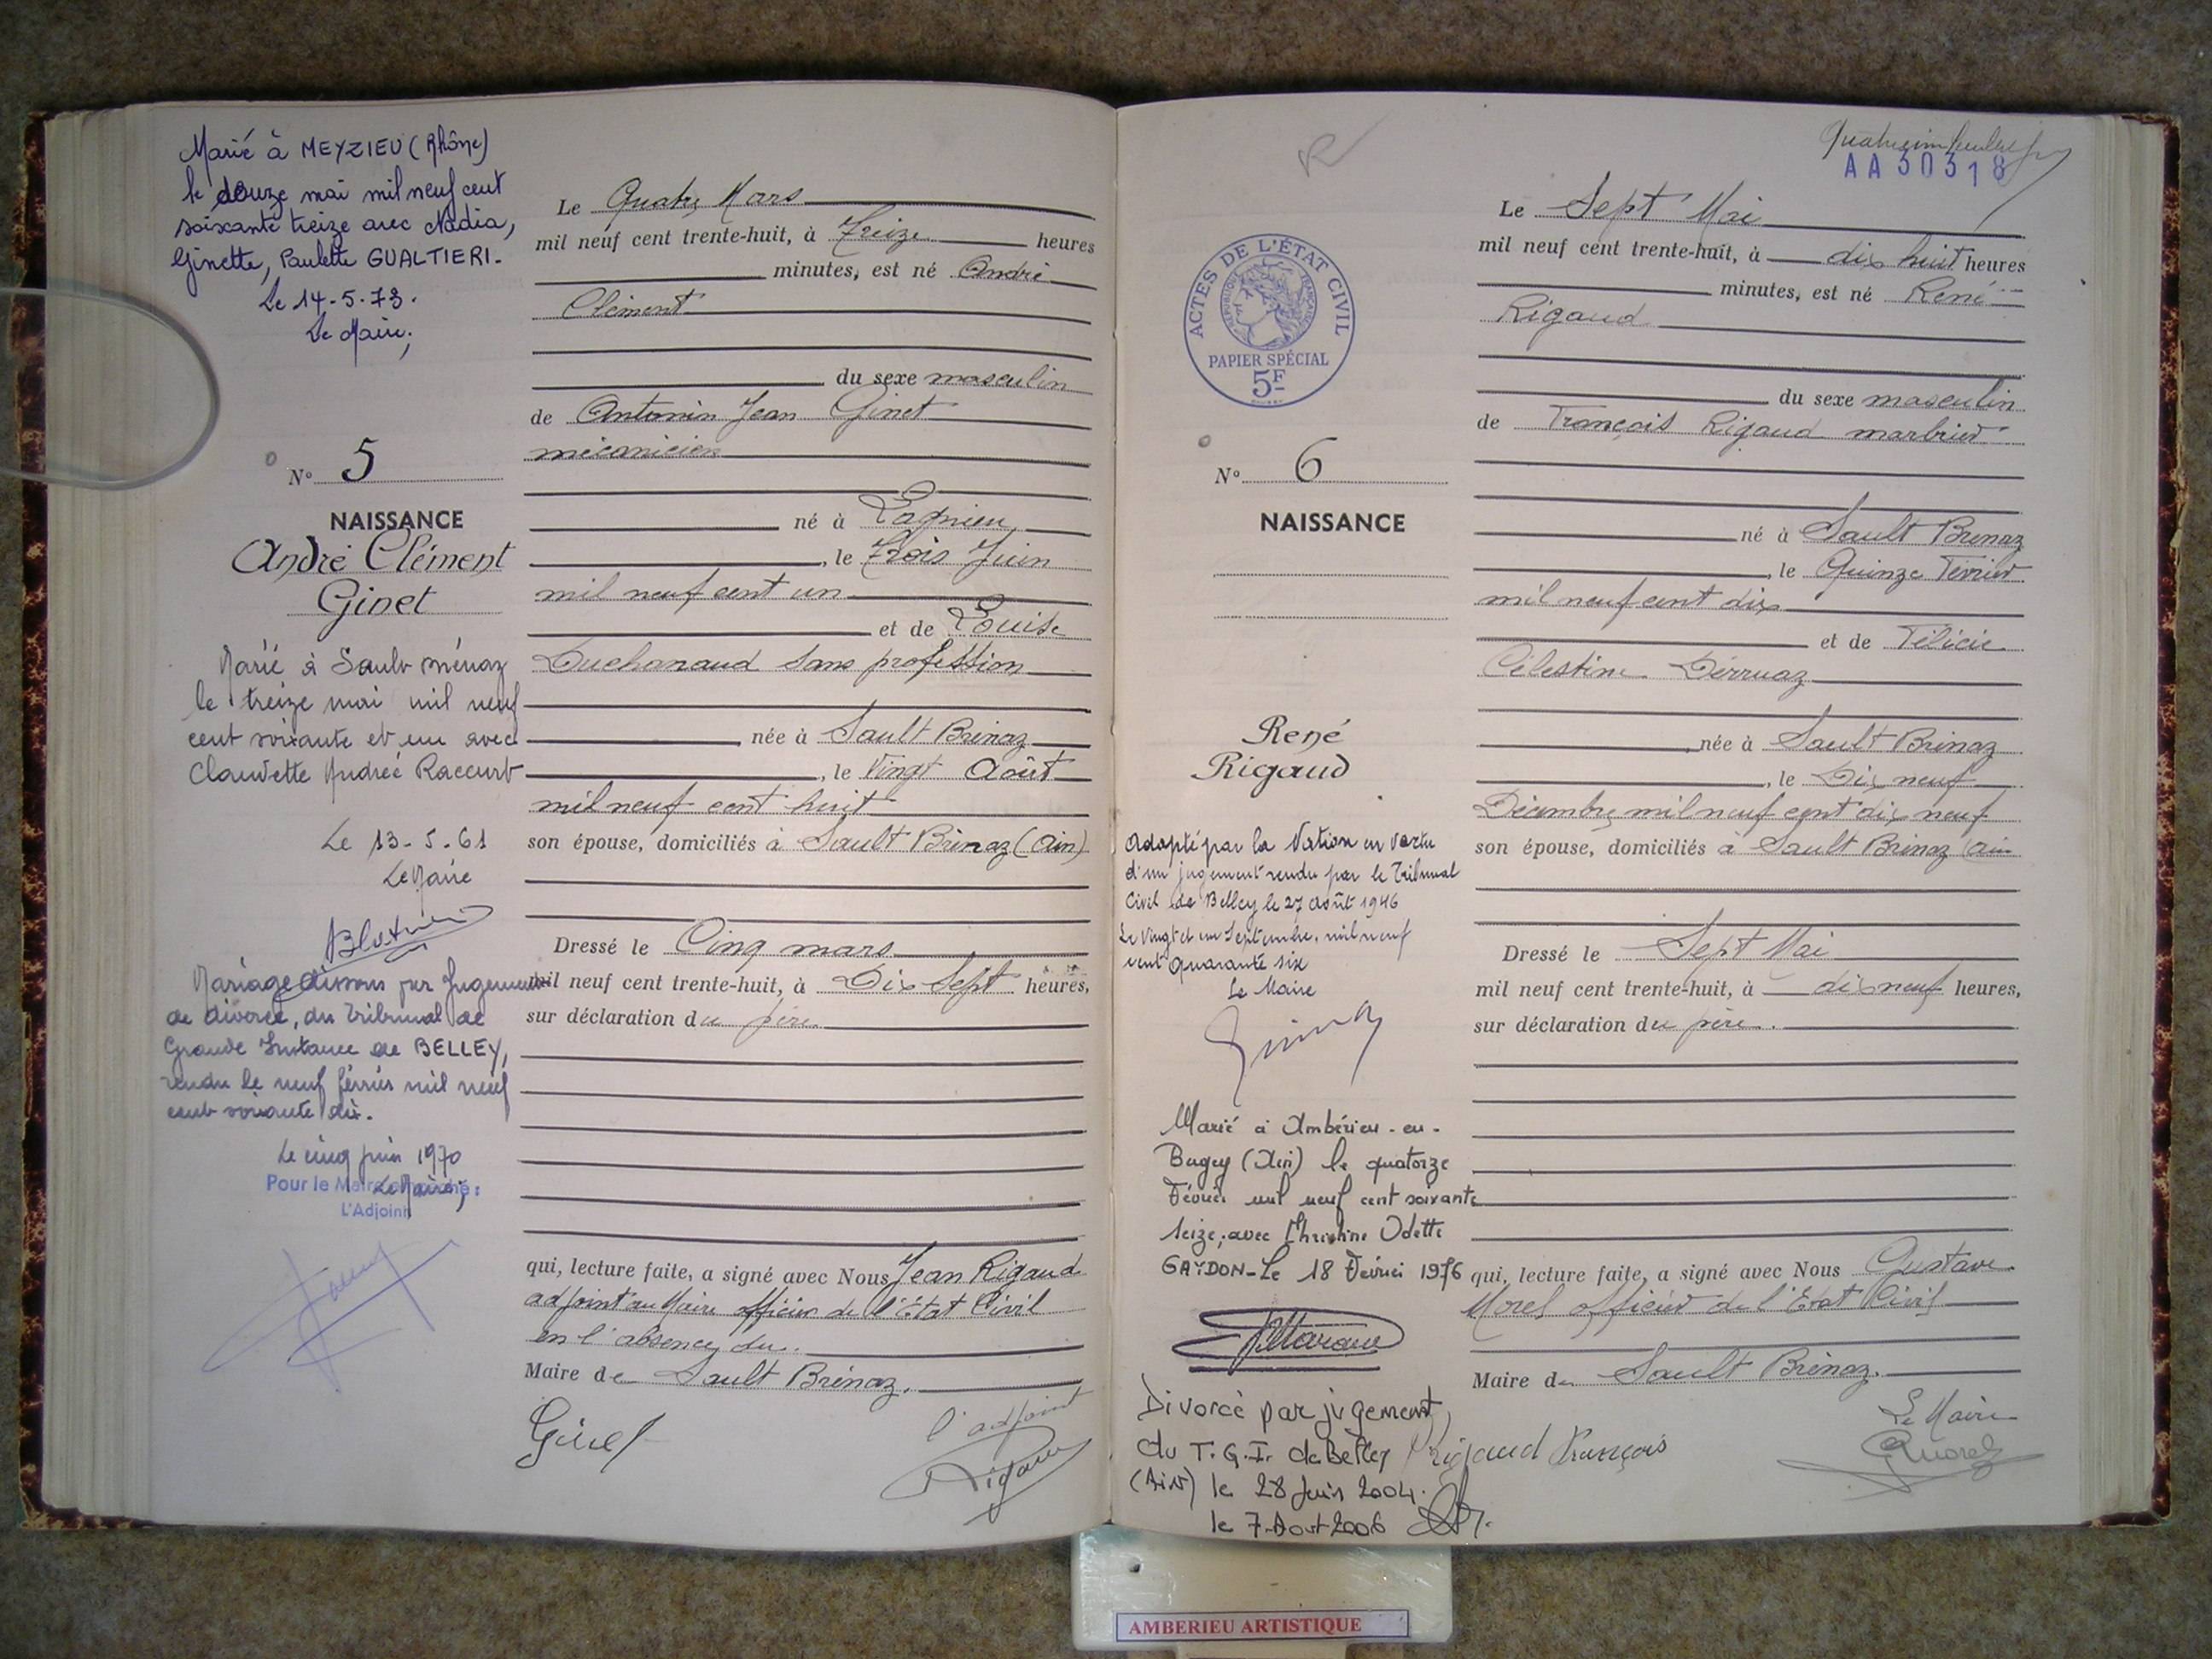 Marié à MEYZIEU (Rhône)
le douze mai mil neuf cent
soixante treize avec Nadia,
Ginette, Paulette GUALTIERI.
Le 14-5-73.
Le Maire,
N° 5
NAISSANCE
André Clément
Ginet
Marié à Sault Brénaz
le treize mai mil neuf
cent soixante et un avec
Claudette Andrée Raccurt
Le 13-5-61
Le Maire
Mariage dissous par Jugement
de divorce, du Tribunal de
Grande Instance de BELLEY,
rendu le neuf février mil neuf
cent soixante dix.
Le cinq juin 1970
Le Maire,
Pour le Maire
L'Adjoint
Le Quatre Mars
mil neuf cent trente-huit, à Treize heures
minutes, est né André
Clément
du sexe masculin
de Antonin Jean Ginet
mécanicien
né à Lagnieu
, le Trois Juin
mil neuf cent un
et de Louise
Duchanaud sans profession
née à Sault Brénaz
, le Vingt Août
mil neuf cent huit
son épouse, domiciliés à Sault Brénaz (Ain)
Dressé le Cinq mars
mil neuf cent trente-huit, à Dix Sept heures,
sur déclaration du père
qui, lecture faite, a signé avec Nous Jean Rigaud
adjoint au Maire officier de l'État Civil
en l'absence du
Maire de Sault Brénaz.
Ginet
l'adjoint
Rigaud
AA30318
ACTES DE L'ÉTAT CIVIL
RÉPUBLIQUE FRANÇAISE
PAPIER SPÉCIAL
5F
N° 6
NAISSANCE
René
Rigaud
Adopté par la Nation en vertu
d'un jugement rendu par le Tribunal
Civil de Belley le 27 août 1946
Le Vingt et un Septembre, mil neuf
cent quarante six
Le Maire
Marié à Ambérieu-en-
Bugey (Ain) le quatorze
Février mil neuf cent soixante
seize, avec Christine Odette
GAYDON-Le 18 Février 1976
Divorcé par jugement
du T.G.I. de Belley
(Ain) le 28 Juin 2004.
le 7 Aout 2006
Le Sept Mai
mil neuf cent trente-huit, à dix huit heures
minutes, est né René
Rigaud
du sexe masculin
de François Rigaud marbrier
né à Sault Brénaz
, le Quinze Février
mil neuf cent dix
et de Félicie
Célestine Derruaz
née à Sault Brénaz
, le Dix neuf
Décembre mil neuf cent dix neuf
son épouse, domiciliés à Sault Brénaz Ain
Dressé le Sept Mai
mil neuf cent trente-huit, à dix neuf heures,
sur déclaration du père.
qui, lecture faite, a signé avec Nous Gustave
Morel officier de l'Etat Civil
Maire de Sault Brénaz.
Rigaud François
Le Maire
GMorel
AMBERIEU ARTISTIQUE